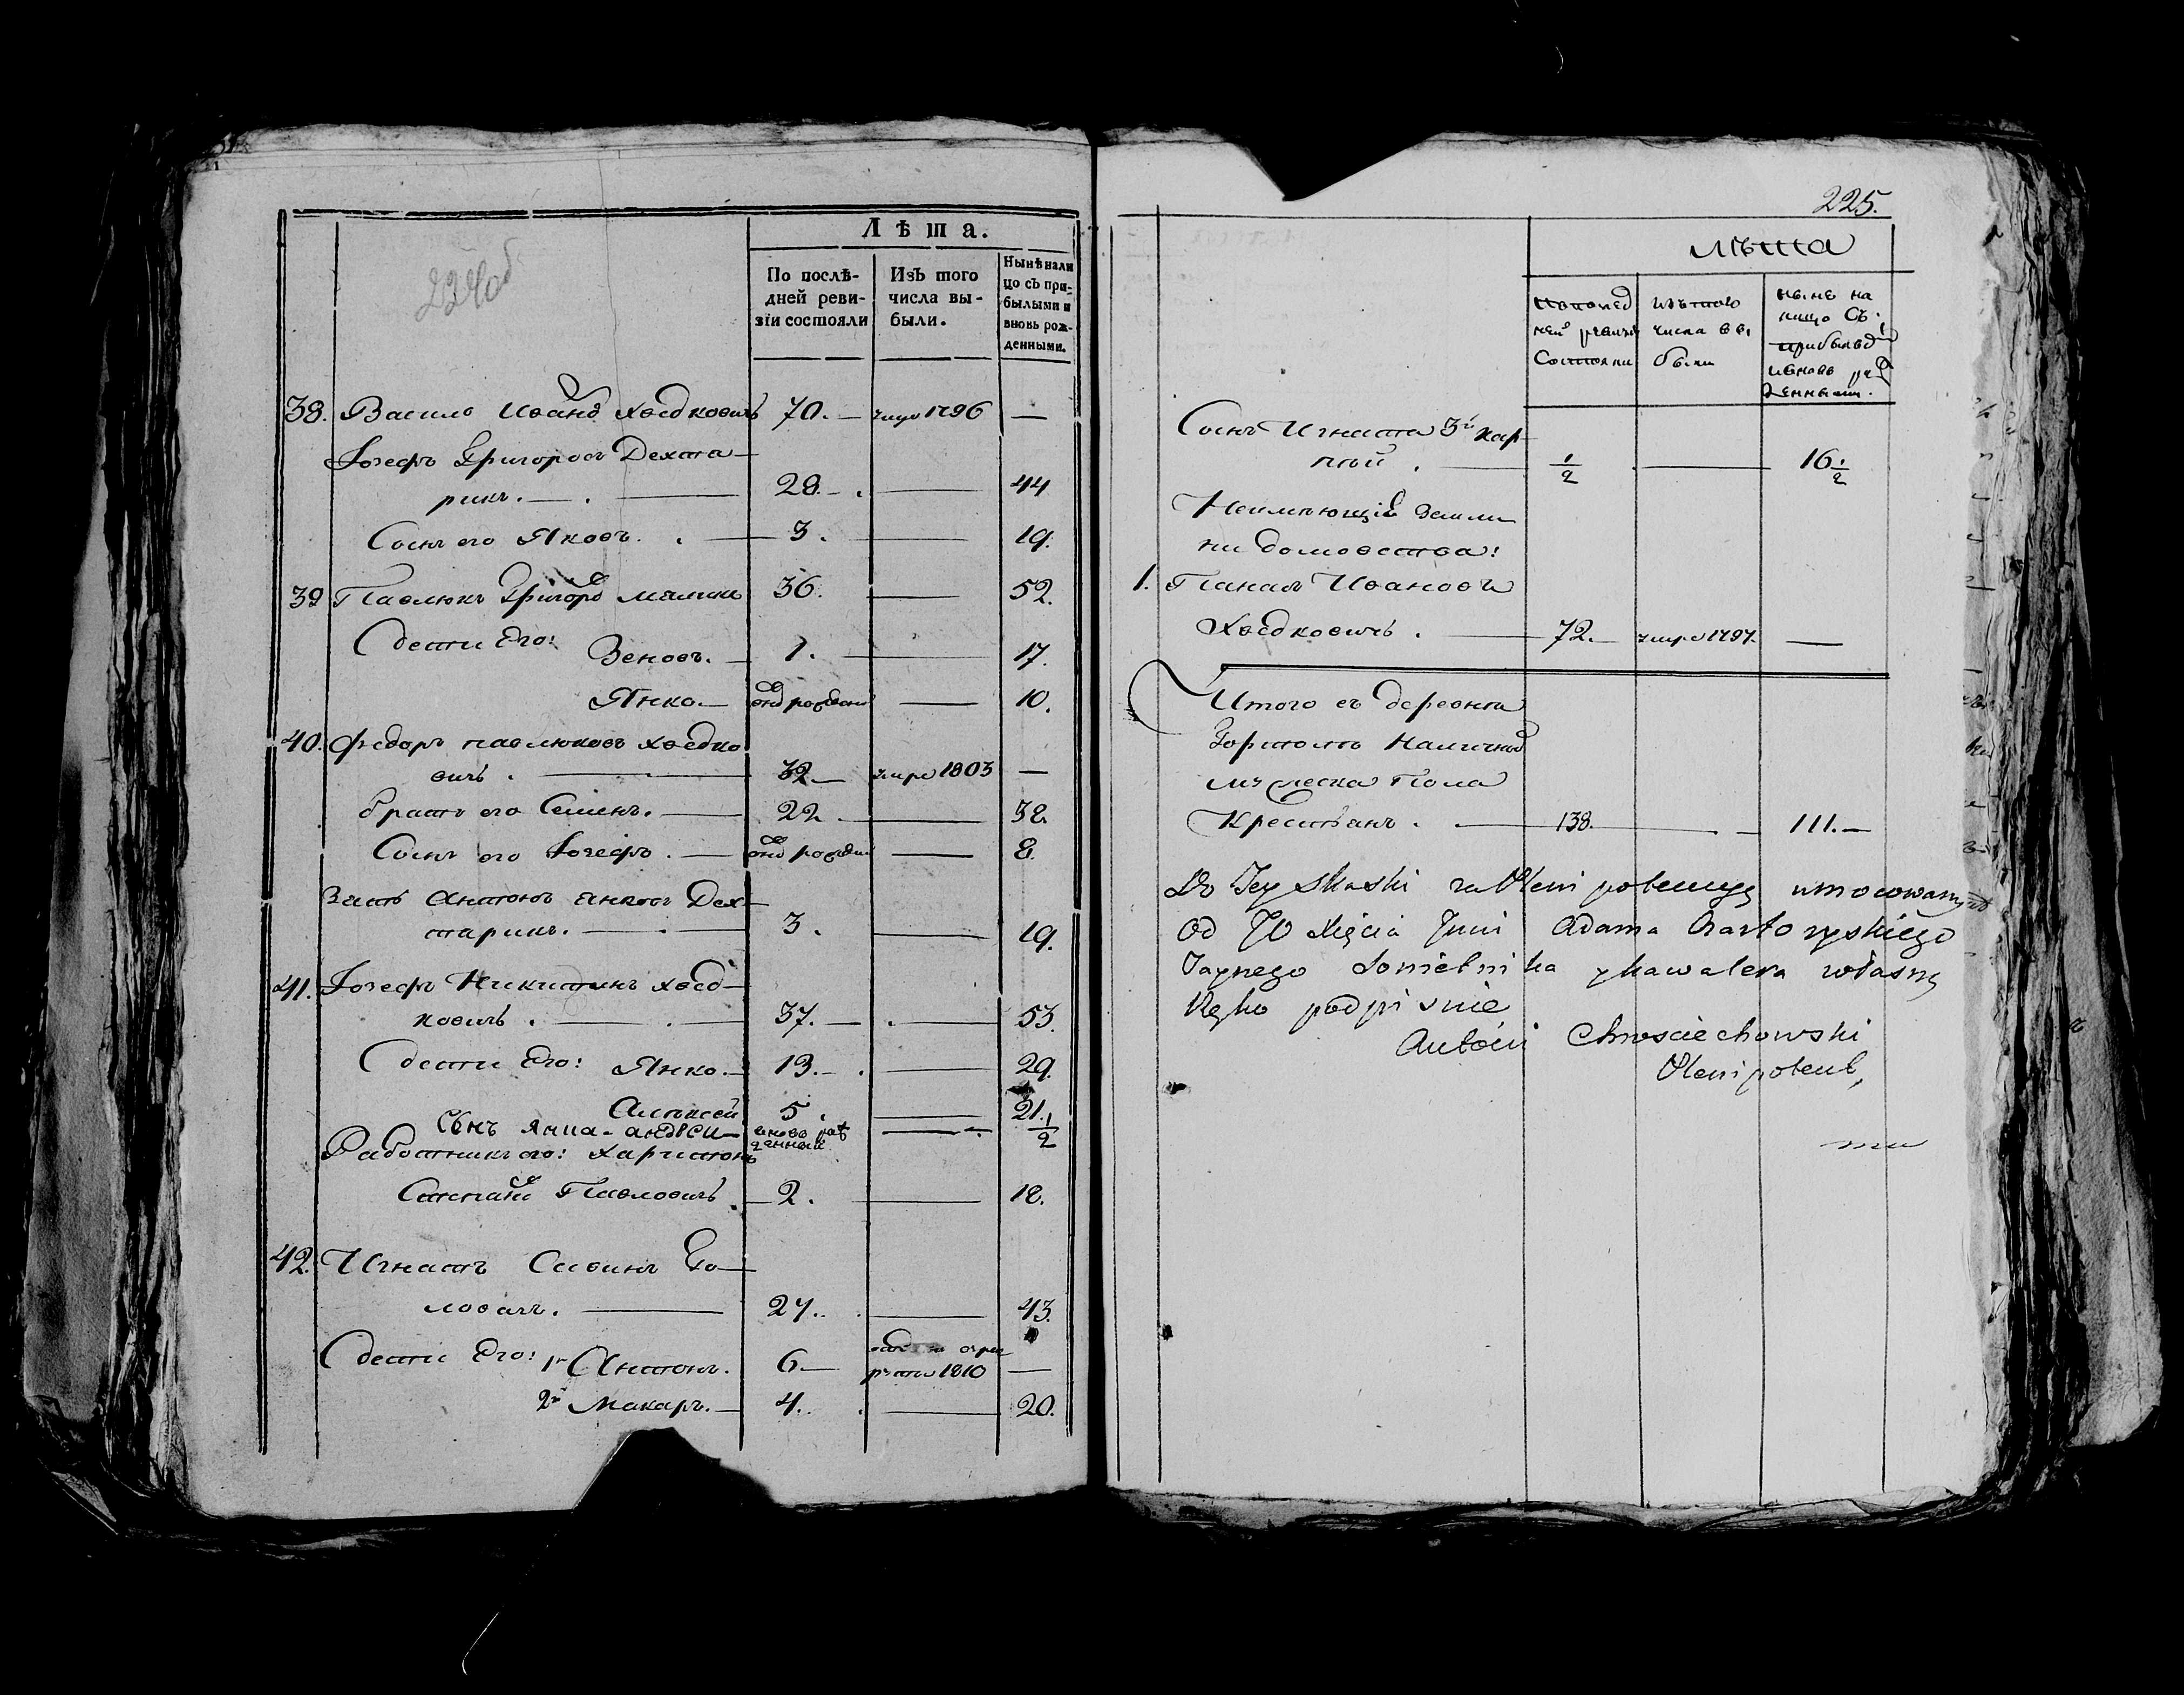 224об
Лѣта.
По послѣ-
дней реви-
зіи состояли
Изъ того
числа вы-
были.
Нынѣ нали
цо съ при-
былыми и
вновь рож-
денными.
38. Василь Иванов Хведковичъ 70. — умре 1796 —
Іозефъ Григоровъ Дехта-
рикъ. — 28. — 44
Сынъ его Яковъ. — 3. — 19.
39 Павлюкъ Григоров 36. — 52.
дети Его: Зеновъ. — 1. — 17.
Янко. — — 10.
40. Федоръ Павлюковъ Хведко
вичъ. — 32 — умре 1803 —
братъ его Семенъ. — 22 — 38.
Сынъ его Іозефъ. — — 8.
Зять Антонъ Янковъ Дех-
тарикъ. — 3. — 19.
41. Іозефъ Никитинъ Хвед-
ковичъ. — 37. — 53.
дети Его: Янко. — 13. — 29.
Алексей 5 — 21.
Сынъ Янка - Андреи - вновь рож
денный — 1/2
Работникъ его: Харитонъ
Павловичъ 2. — 18.
42. Игнатъ Савинъ Го-
ловачъ. — 27. — 43.
дети Его: 1й Антонъ. 6 — 
рекруты 1810 —
2й Макаръ. — 4. — 20.
225.
лѣта
по послед
ней ревизіи
Состояли
изъ того
числа вы
были
ныне на
лицо Съ
прибылы
ивновь рож
денными.
Сынъ Игната 3й Кар-
пей. — 1/2 — 16 1/2
Неимеющіе Земли
ни домовства:
1. Панасъ Ивановъ
Хведковичъ. — 72. — умре 1797. —
Итого въ деревни
наличных
мужеска Пола
Крестьянъ. — 138. — 111. —
Do Tey Skaski za Plenipotencyą umocowany
Od JO Xięcia Jmci Adama Czartoryskiego
Taynego Sowietnika y kawalera własną
Ręką podpisuię
Antoni Chrościechowski
Plenipotent,